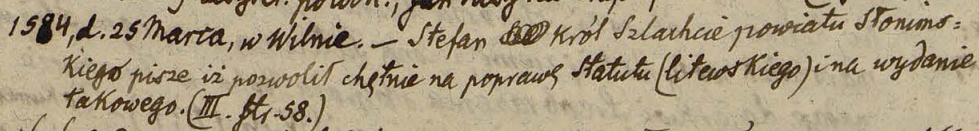 1584, d. 25 Marca, w Wilnie. — Stefan Król Szlachcie powiatu Słonims-
kiego pisze iż pozwolił chętnie na poprawę Statutu (litewskiego) i na wydanie
takowego. (III. Str. 58.)